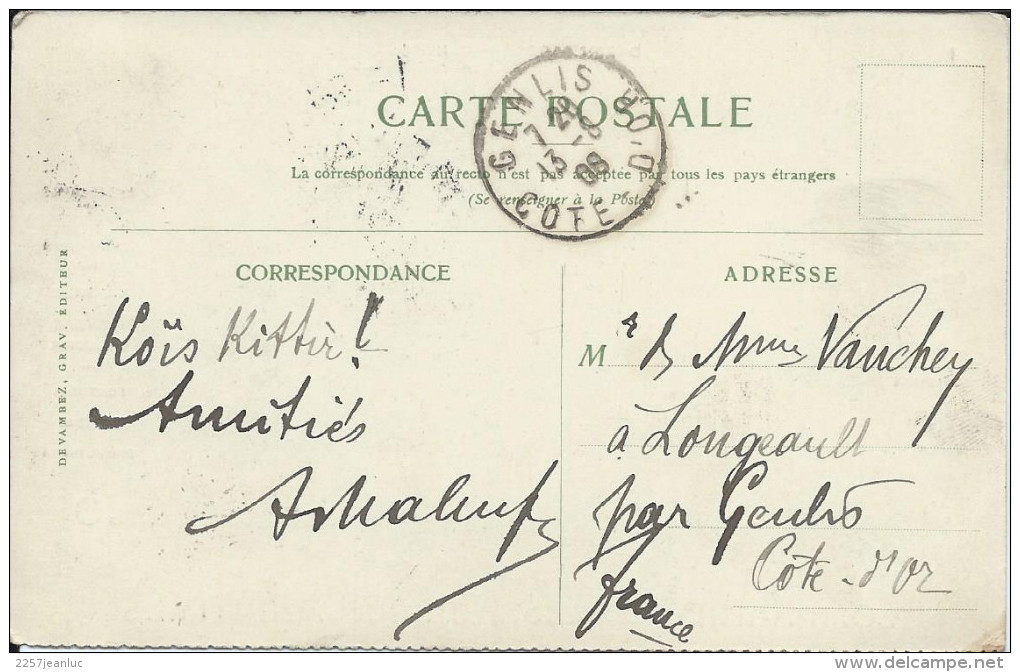 CARTE POSTALE
La correspondance au recto n'est pas acceptée par tous les pays étrangers
(Se renseigner à la Poste)
GENLIS COTE-D'OR
13-8
08
DEVAMBEZ, GRAV. ÉDITEUR
CORRESPONDANCE
Amitiés
ADRESSE
M Mme Vauchey
à Longeault
par Genlis
Côte-d'Or
france
2257jeanluc
www.delcampe.net